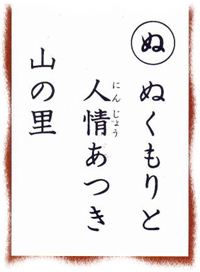 ぬ
ぬくもりと
人情あつき
にんじょう
山の里